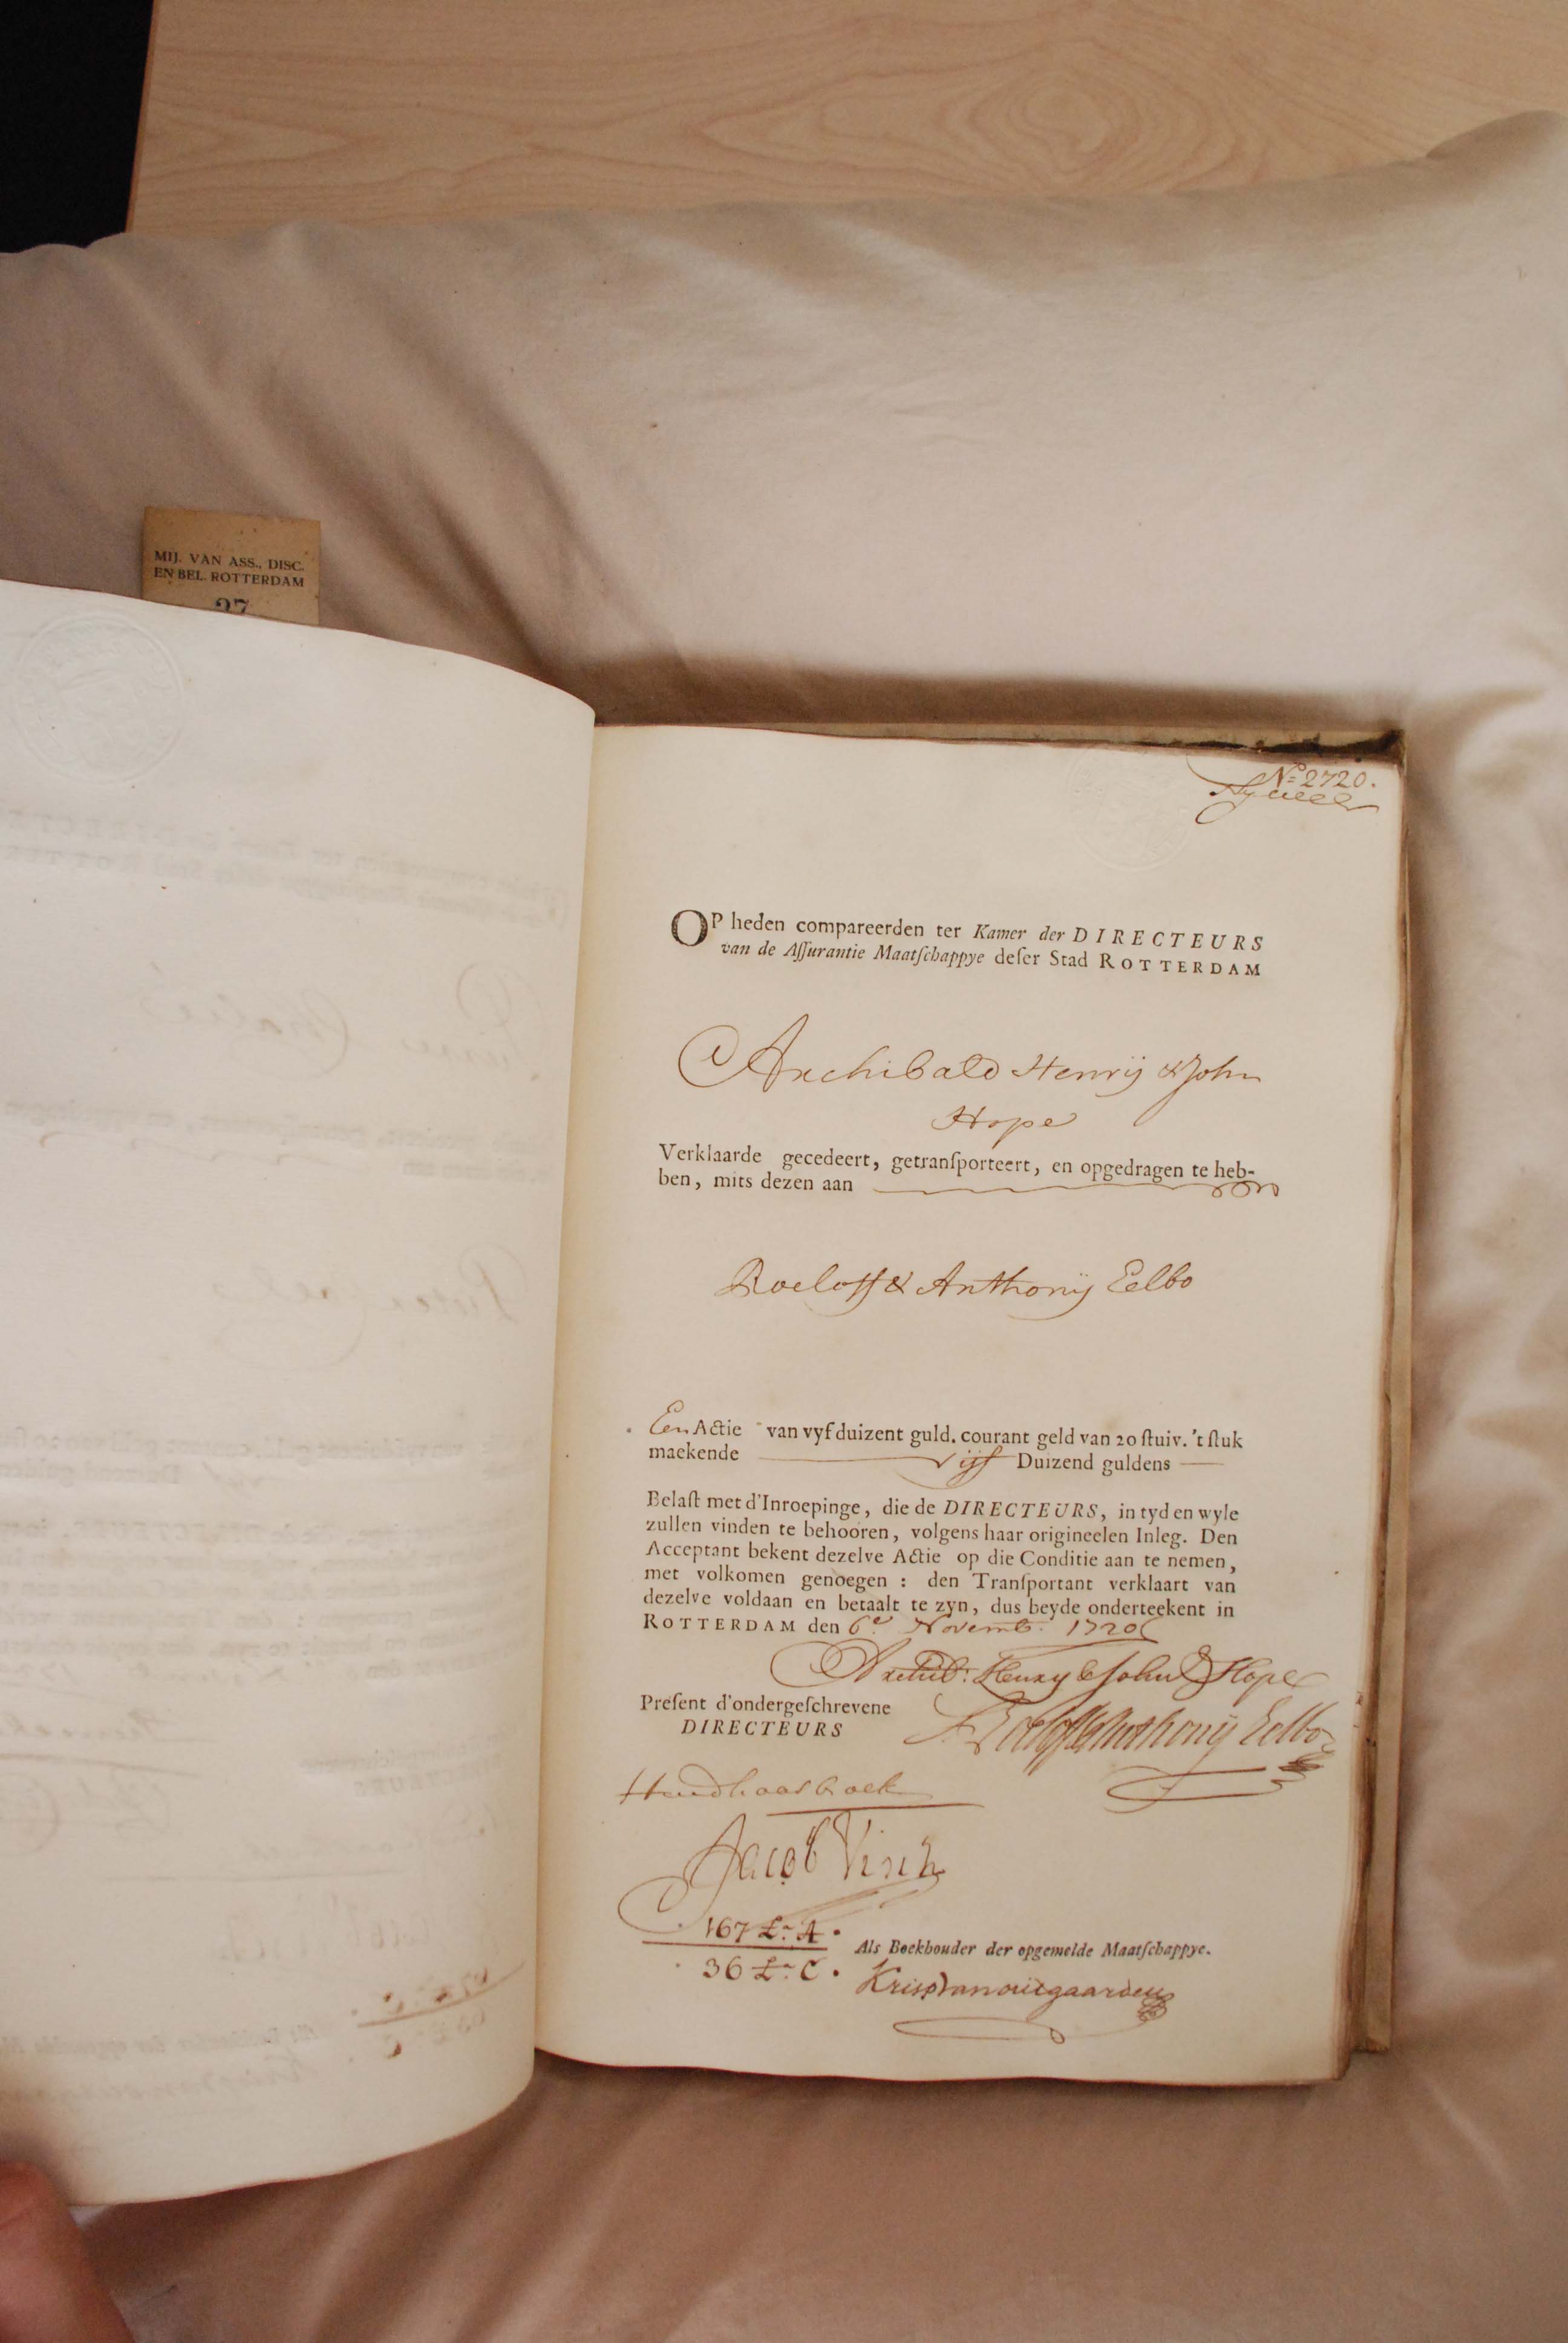 MIJ. VAN ASS., DISC.
EN BEL. ROTTERDAM
27
No: 2720.
OP heden compareerden ter Kamer der DIRECTEURS
van de Aſſurantie Maatſchappye deſer Stad ROTTERDAM
Archibald Henrij & John
Hope
Verklaarde gecedeert, getranſporteert, en opgedragen te heb-
ben, mits dezen aan
Roeloff & Anthonij Eelbo
Een Actie van vyf duizent guld. courant geld van 20 ſtuiv. 't ſtuk
maekende vijf Duizend guldens
Belaſt met d'Inroepinge, die de DIRECTEURS, in tyd en wyle
zullen vinden te behooren, volgens haar origineelen Inleg. Den
Acceptant bekent dezelve Actie op die Conditie aan te nemen,
met volkomen genoegen : den Tranſportant verklaart van
dezelve voldaan en betaalt te zyn, dus beyde onderteekent in
ROTTERDAM den 6e Novemb. 1720
Archib: Henry & John Hope
Preſent d'ondergeſchrevene
DIRECTEURS
Roeloff & Anthonij Eelbo
Jacob Visch
167 Lr. A.
36 Lr. C.
Als Boekhouder der opgemelde Maatſchappye.
Kris van outgaarden